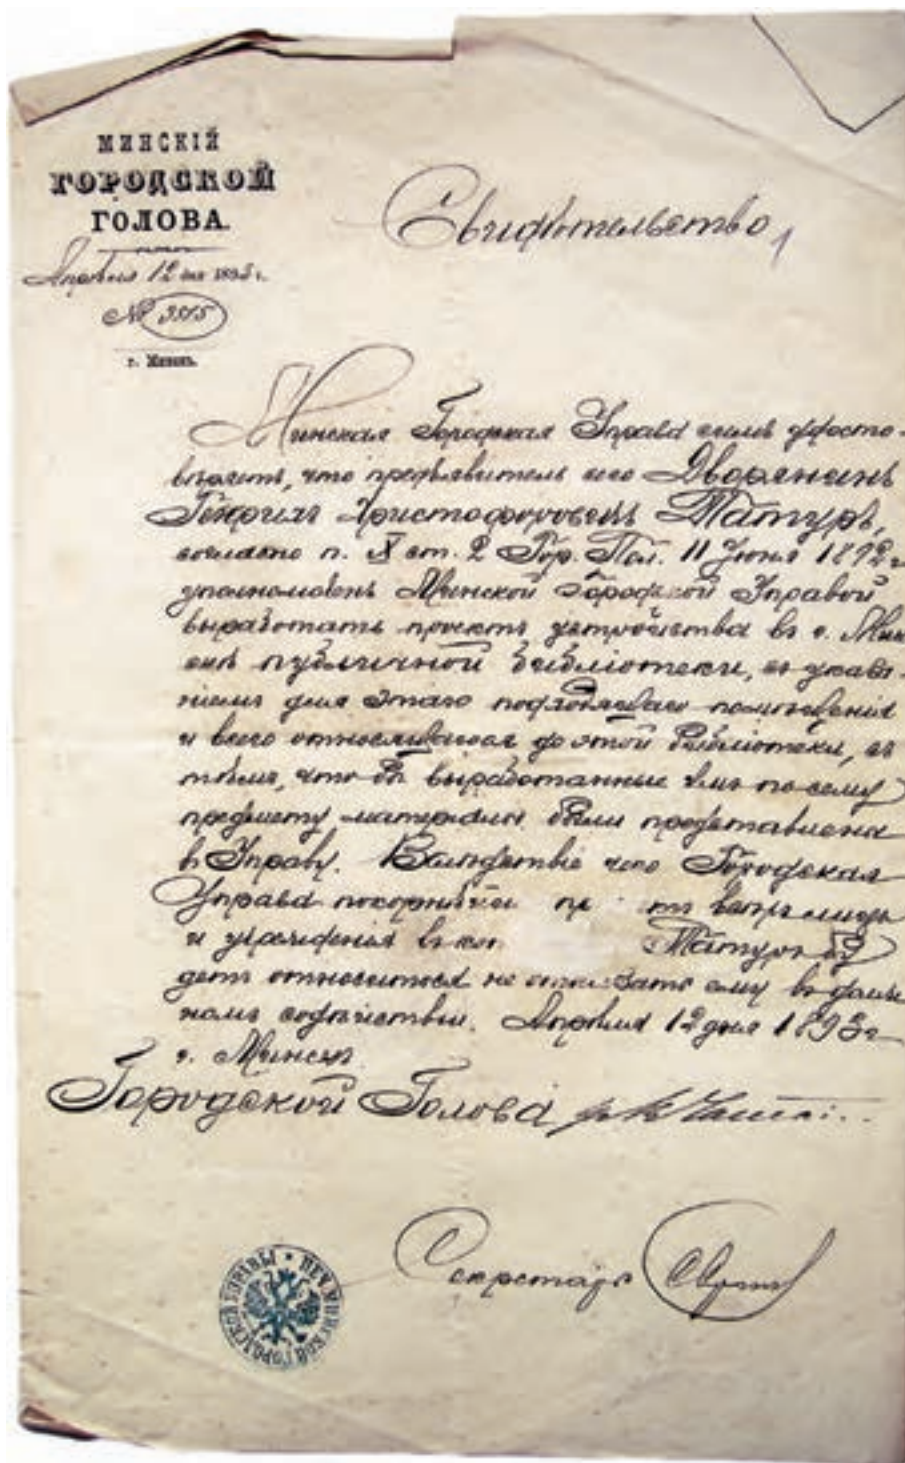 МИНСКІЙ
ГОРОДСКОЙ
ГОЛОВА.
Апрѣля 12 дня 1893 г.
№ 3315
г. Минскъ.
Свидѣтельство
Минская Городская Управа симъ удосто-
вѣряетъ, что предъявитель сего Дворянинъ
Генрихъ Христофоровичъ Татуръ,
согласно п. X ст. 2 Гор. Пол. 11 Іюня 1892 г.
уполномоченъ Минской Городской Управой
выработать проектъ устройства въ г. Мин
скѣ публичной библіотеки, съ указа-
ніемъ для этаго подходящаго помѣщенія
и всего относящагося до этой библіотеки, съ
тѣмъ, что бы выработанные имъ по сему
предмету матеріалы были представлены
въ Управу. Вслѣдствіе чего Городская
Управа покорнѣйше пр тъ всѣхъ лицъ
и учрежденія къ ко Татуръ бу
детъ относится не отказать ему въ долж
номъ содѣйствіи. Апрѣля 12 дня 1893 г.
г. Минскъ
Городской Голова
Секретарь
ПЕЧ. МИНСКОЙ ГОРОДСКОЙ УПРАВЫ